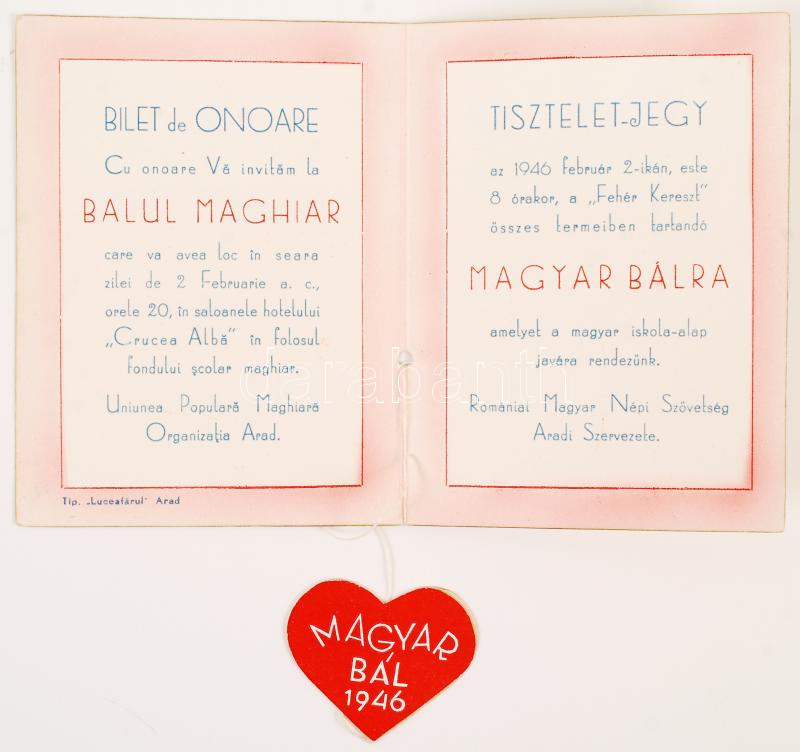 BILET de ONOARE
Cu onoare Vă invităm la
BALUL MAGHIAR
care va avea loc în seara
zilei de 2 Februarie a. c.,
orele 20, în saloanele hotelului
„Crucea Albă” în folosul
fondului școlar maghiar.
Uniunea Populară Maghiară
Organizația Arad.
Tip. „Luceafărul” Arad
TISZTELET-JEGY
az 1946 február 2-ikán, este
8 órakor, a „Fehér Kereszt”
összes termeiben tartandó
MAGYAR BÁLRA
amelyet a magyar iskola-alap
javára rendezünk.
Romániai Magyar Népi Szövetség
Aradi Szervezete.
darabanth
MAGYAR
BÁL
1946